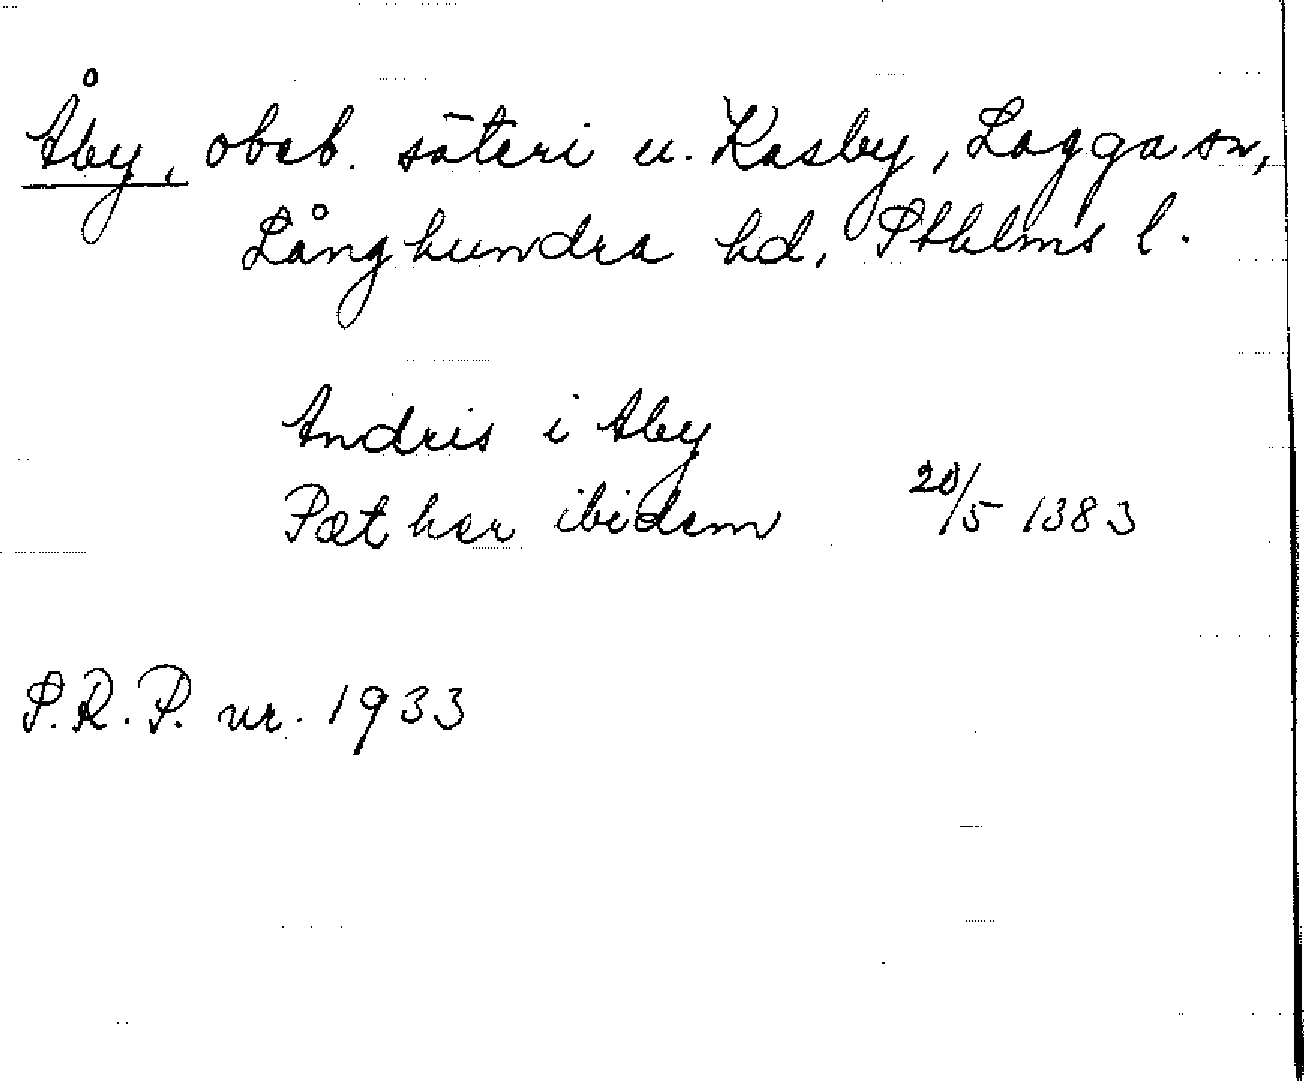 Åby, obeb. säteri u. Kasby, Lagga sn,
Långhundra hd, Sthlms l.
Andris i Aby
Pæthær ibidem 20/5 1383
S.R.P. nr. 1933